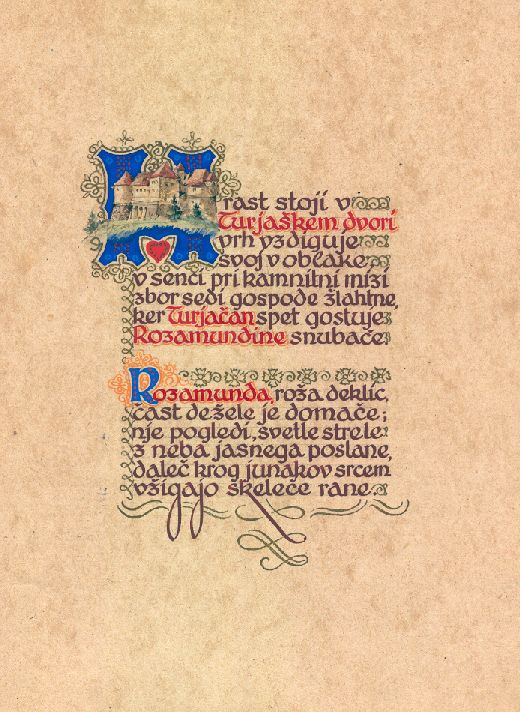 Hrast stoji v
Turjaškem dvori
vrh vzdiguje
svoj v oblake
v senci pri kamnitni mizi
zbor sedi gospode žlahtne,
ker Turjačan spet gostuje
Rozamundine snubače
Rozamunda, roža deklic,
čast dežele je domače;
nje pogledi, svetle strele
z neba jasnega poslane,
daleč krog junakov srcem
vžigajo skeleče rane.